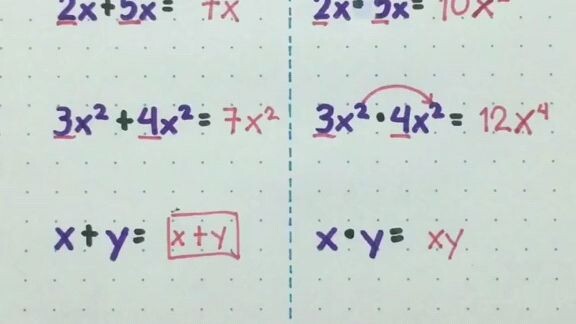 2x+5x= 7x
2x•5x= 10x²
3x²+4x²= 7x²
3x²•4x²= 12x⁴
x+y= x+y
x•y= xy